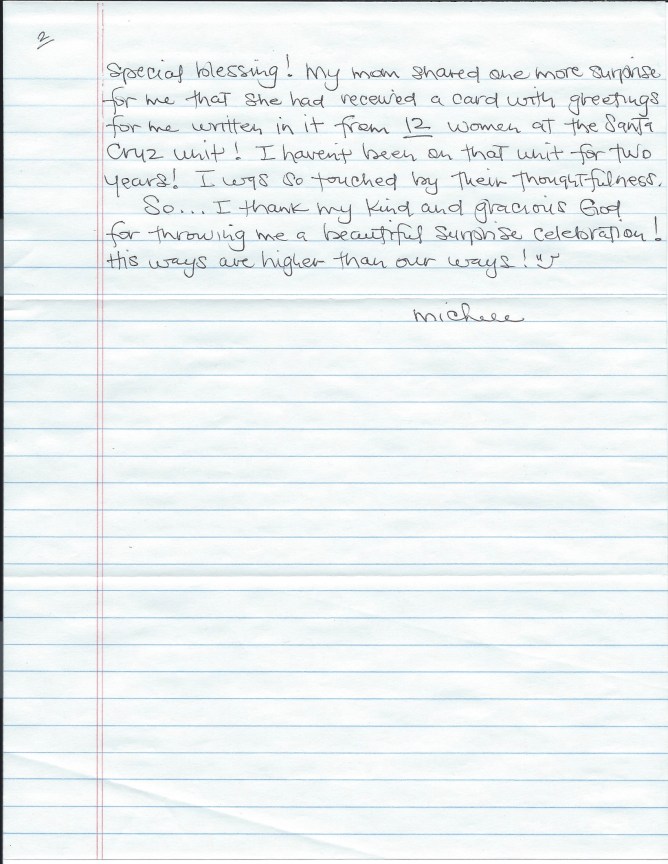 2
special blessing! My mom shared one more surprise
for me that she had received a card with greetings
for me written in it from 12 women at the Santa
Cruz unit! I haven't been on that unit for two
years! I was so touched by their thoughtfulness.
So... I thank my kind and gracious God
for throwing me a beautiful surprise celebration!
His ways are higher than our ways!
Michelle